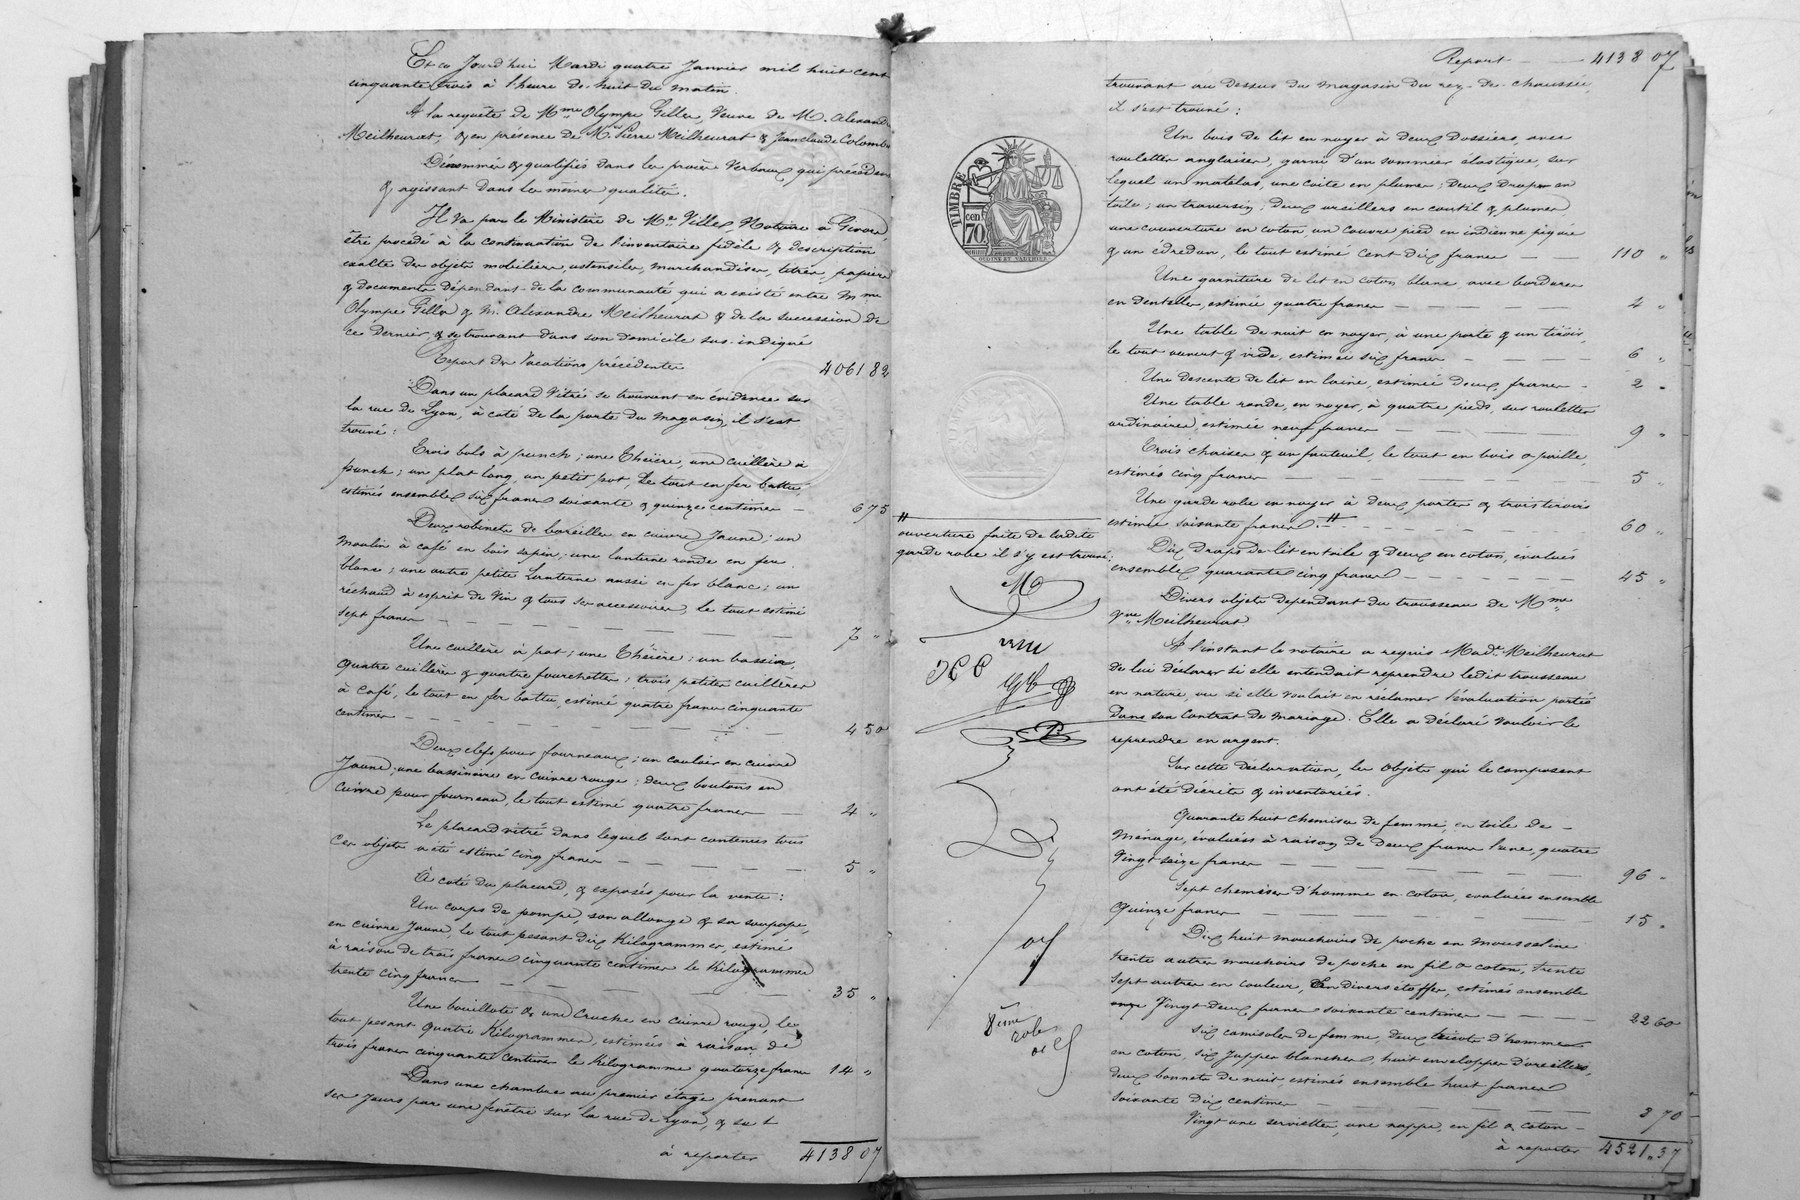 Et ce Jourd'hui Mardi quatre Janvier mil huit cent
cinquante trois à l'heure de huit du matin.
A la requête de Mme Olympe Gilles, Veuve de M. Alexandre
Meilheurat, & en présence de Mrs Pierre Meilheurat & Jean claude Colomb
Dénommés & qualifiés dans les procès Verbaux qui précèdent
& agissant dans les mêmes qualités.
Il Va par le Ministère de Me Villes Notaire à Givors,
être procédé à la continuation de l'inventaire fidèle & description
exacte des objets mobiliers, ustensiles, marchandises, titres, papiers
& documents dépendant de la communauté qui a existé entre Mme
Olympe Gilles & M. Alexandre Meilheurat & de la succession de
ce dernier, & se trouvant dans son domicile sus-indiqué
Report des Vacations précédentes 4061 82
Dans un placard Vitré se trouvant en évidence sur
la rue de Lyon, à coté de la porte du magasin, il s'est
trouvé:
Trois bols à punch; une Théière, une cuillère à
punch; un plat long, un petit pot, Le tout en fer battu,
estimés ensemble six francs soixante & quinze centimes — 6 75
Deux robinets de bareilles en cuivre Jaune; un
moulin à café en bois sapin; une lanterne ronde en fer
blanc; une autre petite Lanterne aussi en fer blanc; un
réchaud à esprit de Vin & tous ses accessoires, le tout estimé
sept francs — 7 "
Une cuillère à pot; une Théière; un bassin,
quatre cuillères & quatre fourchettes; trois petites cuillères
à café, le tout en fer battu, estimé quatre francs cinquante
centimes — 4 50
Deux clefs pour fourneaux; un couloir en cuivre
Jaune; une bassinoire en Cuivre rouge; deux boutons en
Cuivre pour fourneau, le tout estimé quatre francs — 4 "
Le placard vitré dans lequel sont contenus tous
Ces objets a été estimé cinq francs — 5 "
A coté du placard, & exposés pour la vente:
Un corps de pompe, son allonge & sa soupape,
en cuivre Jaune le tout pesant Dix Kilogrammes, estimé
à raison de trois francs cinquante centimes le Kilogramme
trente cinq francs — 35 "
Une bouillote & une Cruche en cuivre rouge, le
tout pesant quatre Kilogrammes, estimées à raison de
trois francs cinquante centimes le Kilogramme quatorze francs 14 "
Dans une chambre au premier étage prenant
ses jours par une fenêtre sur la rue de Lyon, & se t
à reporter 4138 07
Report — 4138 07
trouvant au dessus du magasin du rez-de-chaussée
il s'est trouvé:
Un bois de lit en noyer à deux dossiers, avec
roulettes anglaises, garni d'un sommier élastique, sur
lequel un matelas, une coite en plumes; deux draps en
toile; un traversin, deux oreillers en coutil & plumes
une couverture en coton un couvre pied en indienne piquée
& un édredon, le tout estimé Cent dix francs — 110 "
Une garniture de lit en coton blanc, avec bordures
en dentelles, estimée quatre francs — 4 "
Une table de nuit en noyer, à une porte & un tiroir,
le tout ouvert & vide, estimée six francs — 6 "
Une descente de lit en laine, estimée deux francs — 2 "
Une table ronde, en noyer, à quatre pieds, sur roulettes
ordinaires, estimée neuf francs — 9 "
Trois chaises & un fauteuil, le tout en bois & paille,
estimés cinq francs — 5 "
Une garde robe en noyer à deux portes & trois tiroirs
estimée soixante francs. # — 60 "
Dix draps de lit en toile & deux en coton, évalués
ensemble quarante cinq francs — 45 "
Divers objets dépendant du trousseau de Mme
Vve Meilheurat.
A l'instant le notaire a requis Made Meilheurat
de lui déclarer si elle entendait reprendre ledit trousseau
en nature, ou si elle voulait en réclamer l'évaluation portée
dans son Contrat de mariage. Elle a déclaré vouloir le
reprendre en argent.
Sur cette déclaration, les objets qui le composent
ont été décrits & inventoriés.
Quarante huit chemises de femme, en toile de
Ménage, évaluées à raison de deux francs l'une, quatre
Vingt seize francs — 96 "
Sept chemises d'homme en coton, évaluées ensemble
Quinze francs — 15 "
Dix huit mouchoirs de poche en mousseline
trente autres mouchoirs de poche en fil & coton, trente
sept autres en couleur, En divers étoffes, estimés ensemble
Vingt deux francs soixante centimes — 22 60
Six camisoles de femme, deux tricots d'hommes
en coton, six juppes blanches, huit enveloppes d'oreillers,
deux bonnets de nuit estimés ensemble huit francs
soixante dix centimes — 8 70
Vingt une serviettes, une nappe, en fil & coton —
à reporter 4521 " 37
TIMBRE
cen
70
#
ouverture faite de ladite
garde robe il s'y est trouvé:
8eme
role